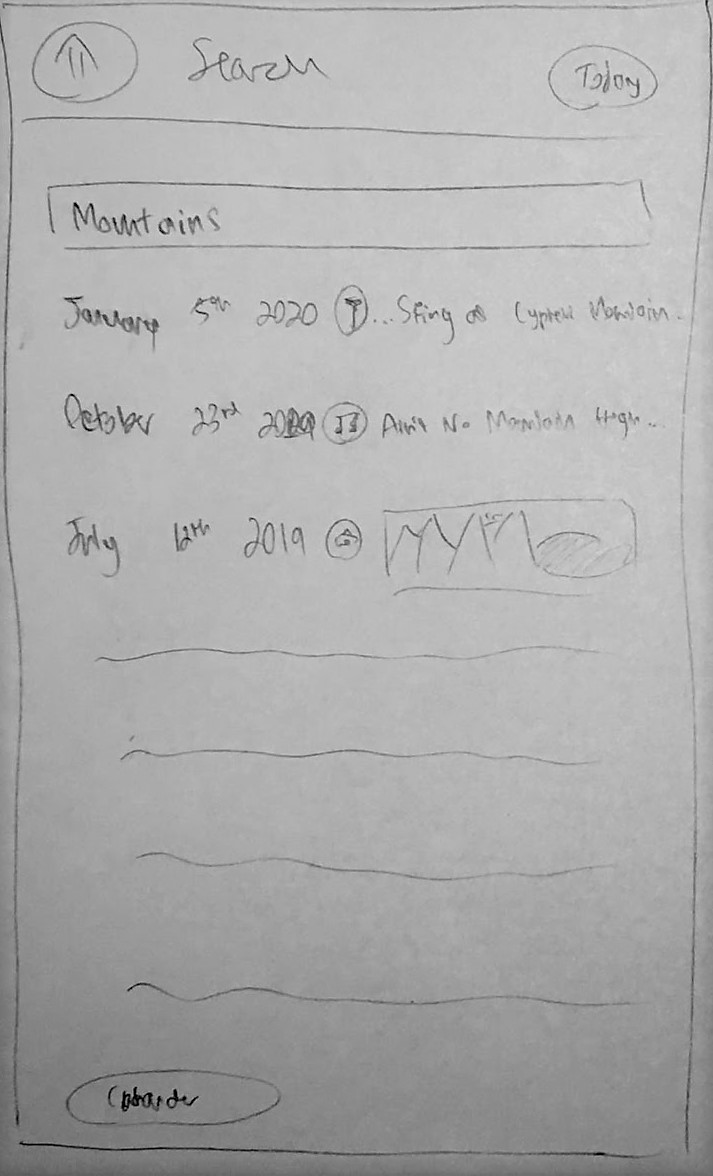 Search
Today
Mountains
January 5th 2020 T ... Cypress Mountain..
October 23rd 2019 Ain't No Mountain High...
July 12th 2019